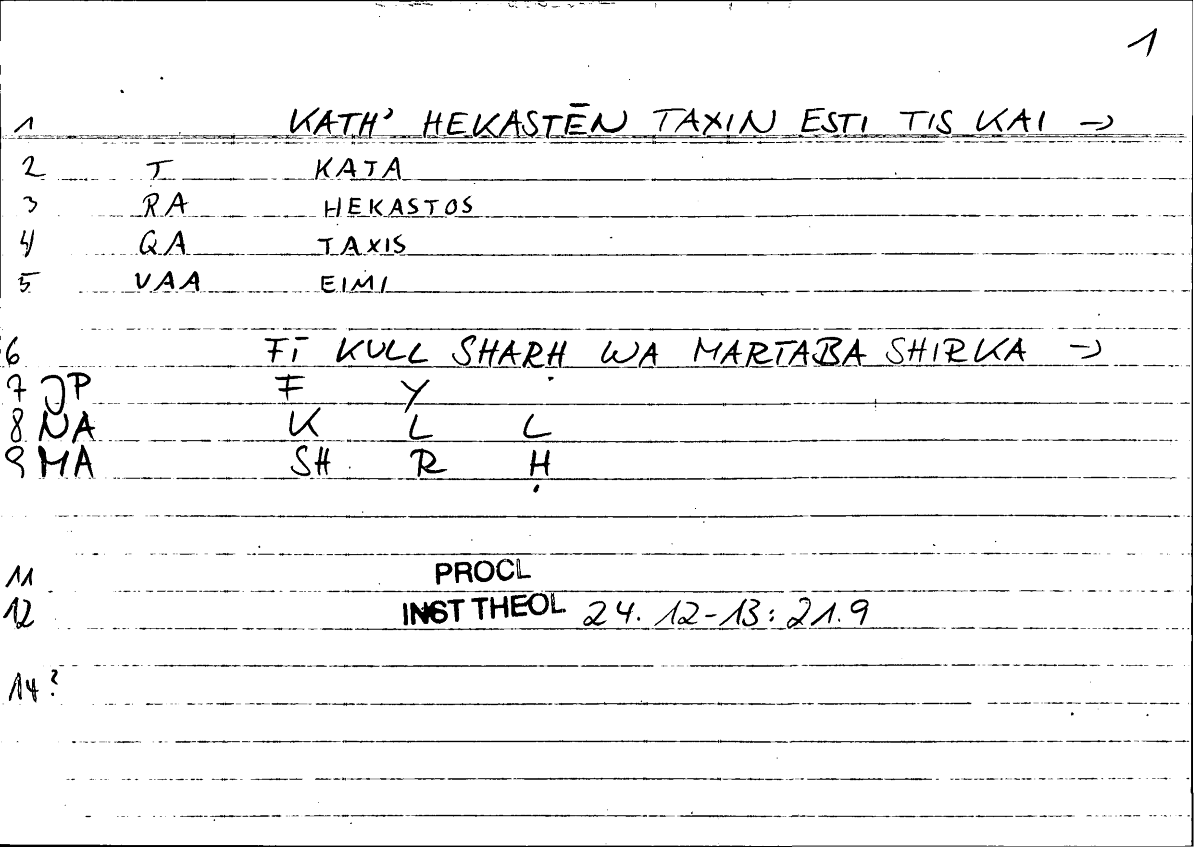 1
1 KATH' HEKASTĒN TAXIN ESTI TIS KAI →
2 T KATA
3 RA HEKASTOS
4 QA TAXIS
5 VAA EIMI
6 FĪ KULL SHARḤ WA MARTABA SHIRKA →
7 JP F Y
8 NA K L L
9 MA SH R Ḥ
11 PROCL
12 INST THEOL 24.12-13:21.9
14?